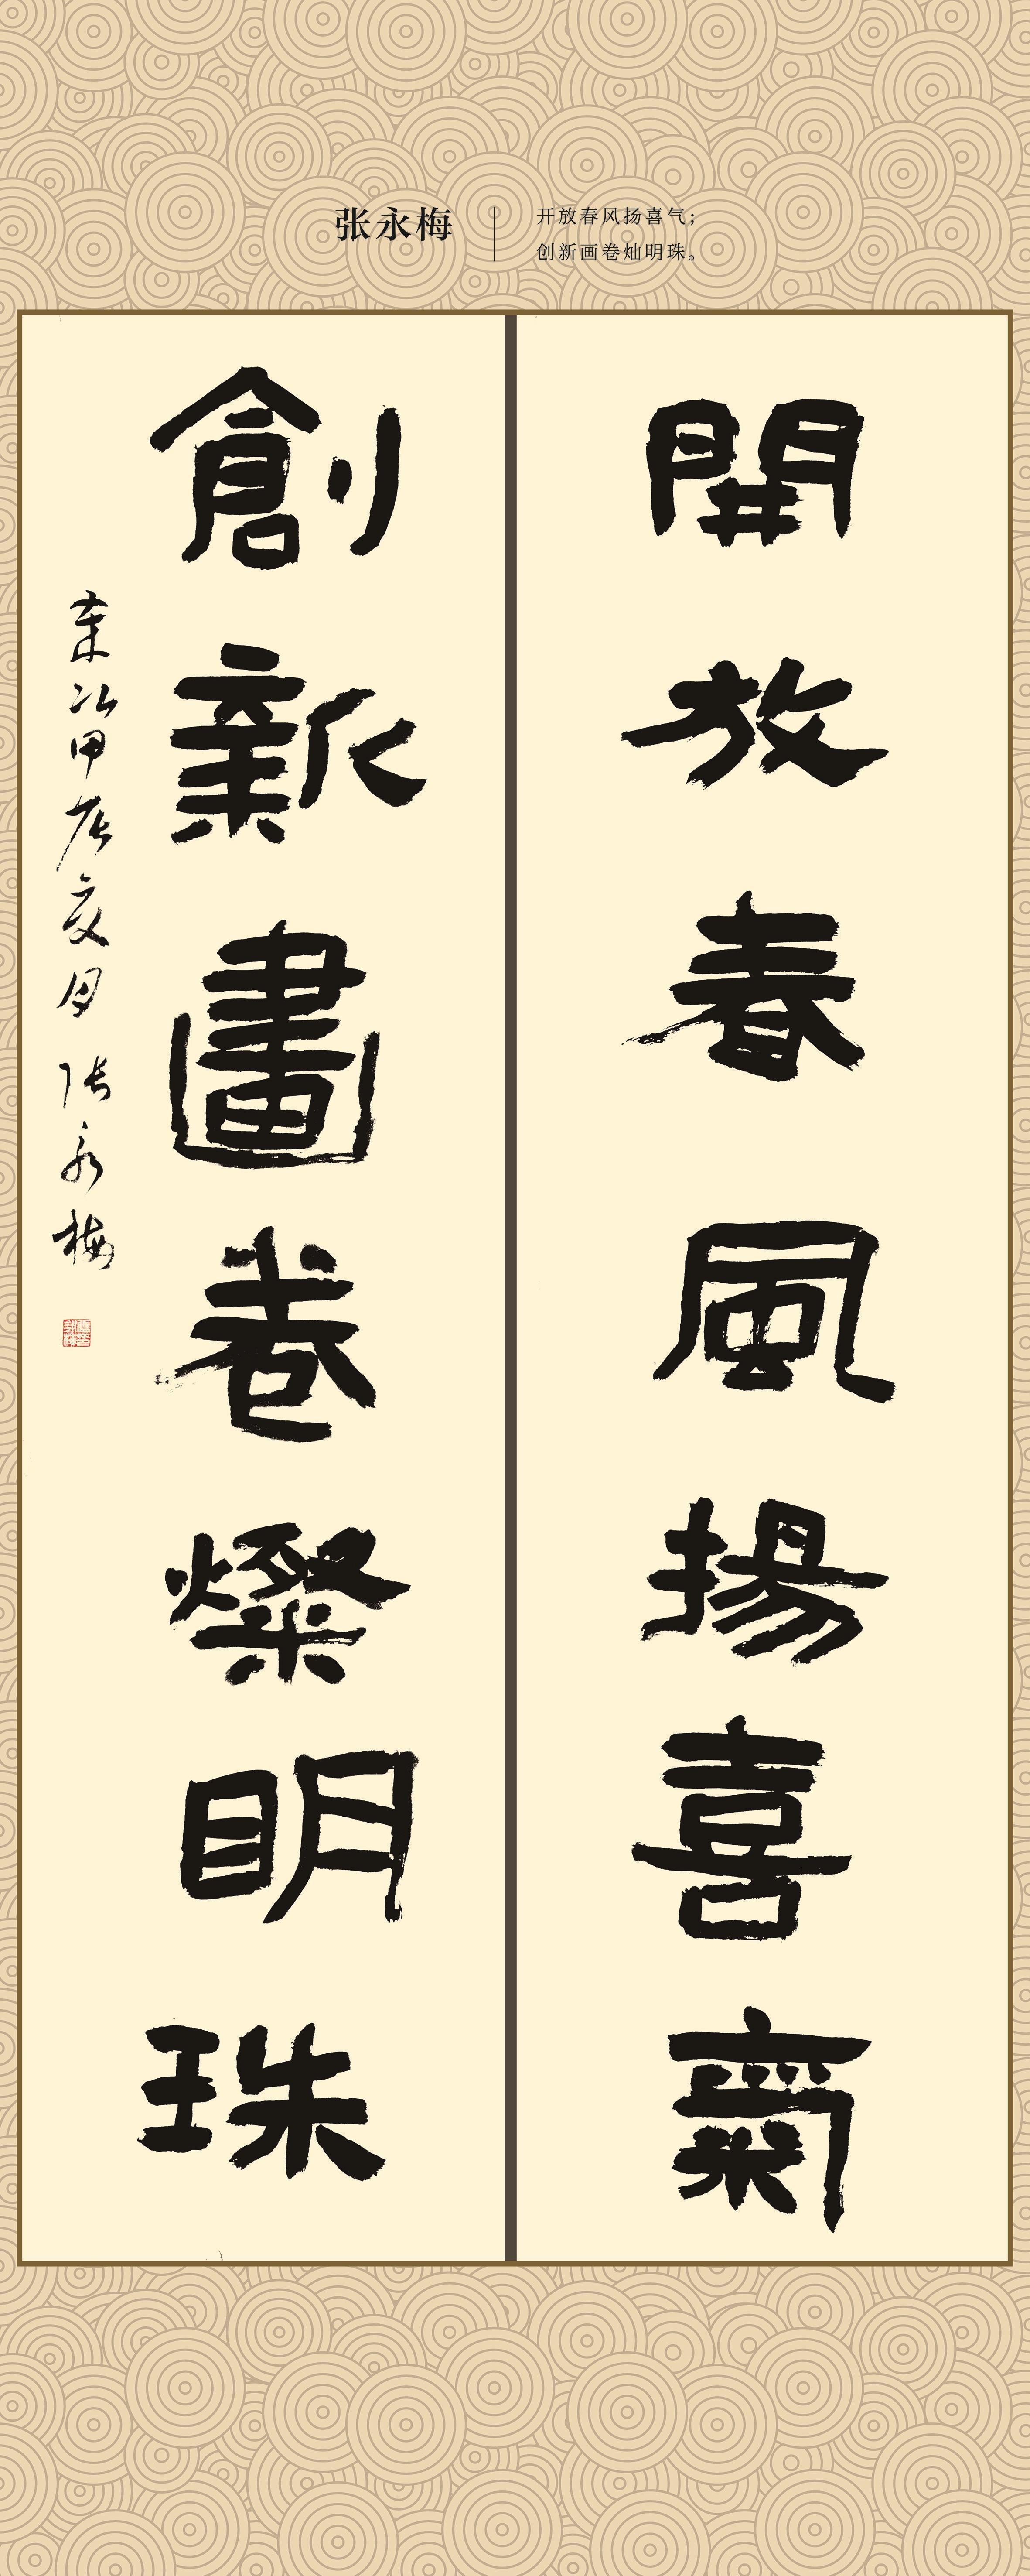 张永梅
开放春风扬喜气；
创新画卷灿明珠。
開放春風揚喜氣
創新畫卷燦明珠
甲辰夏月 张永梅